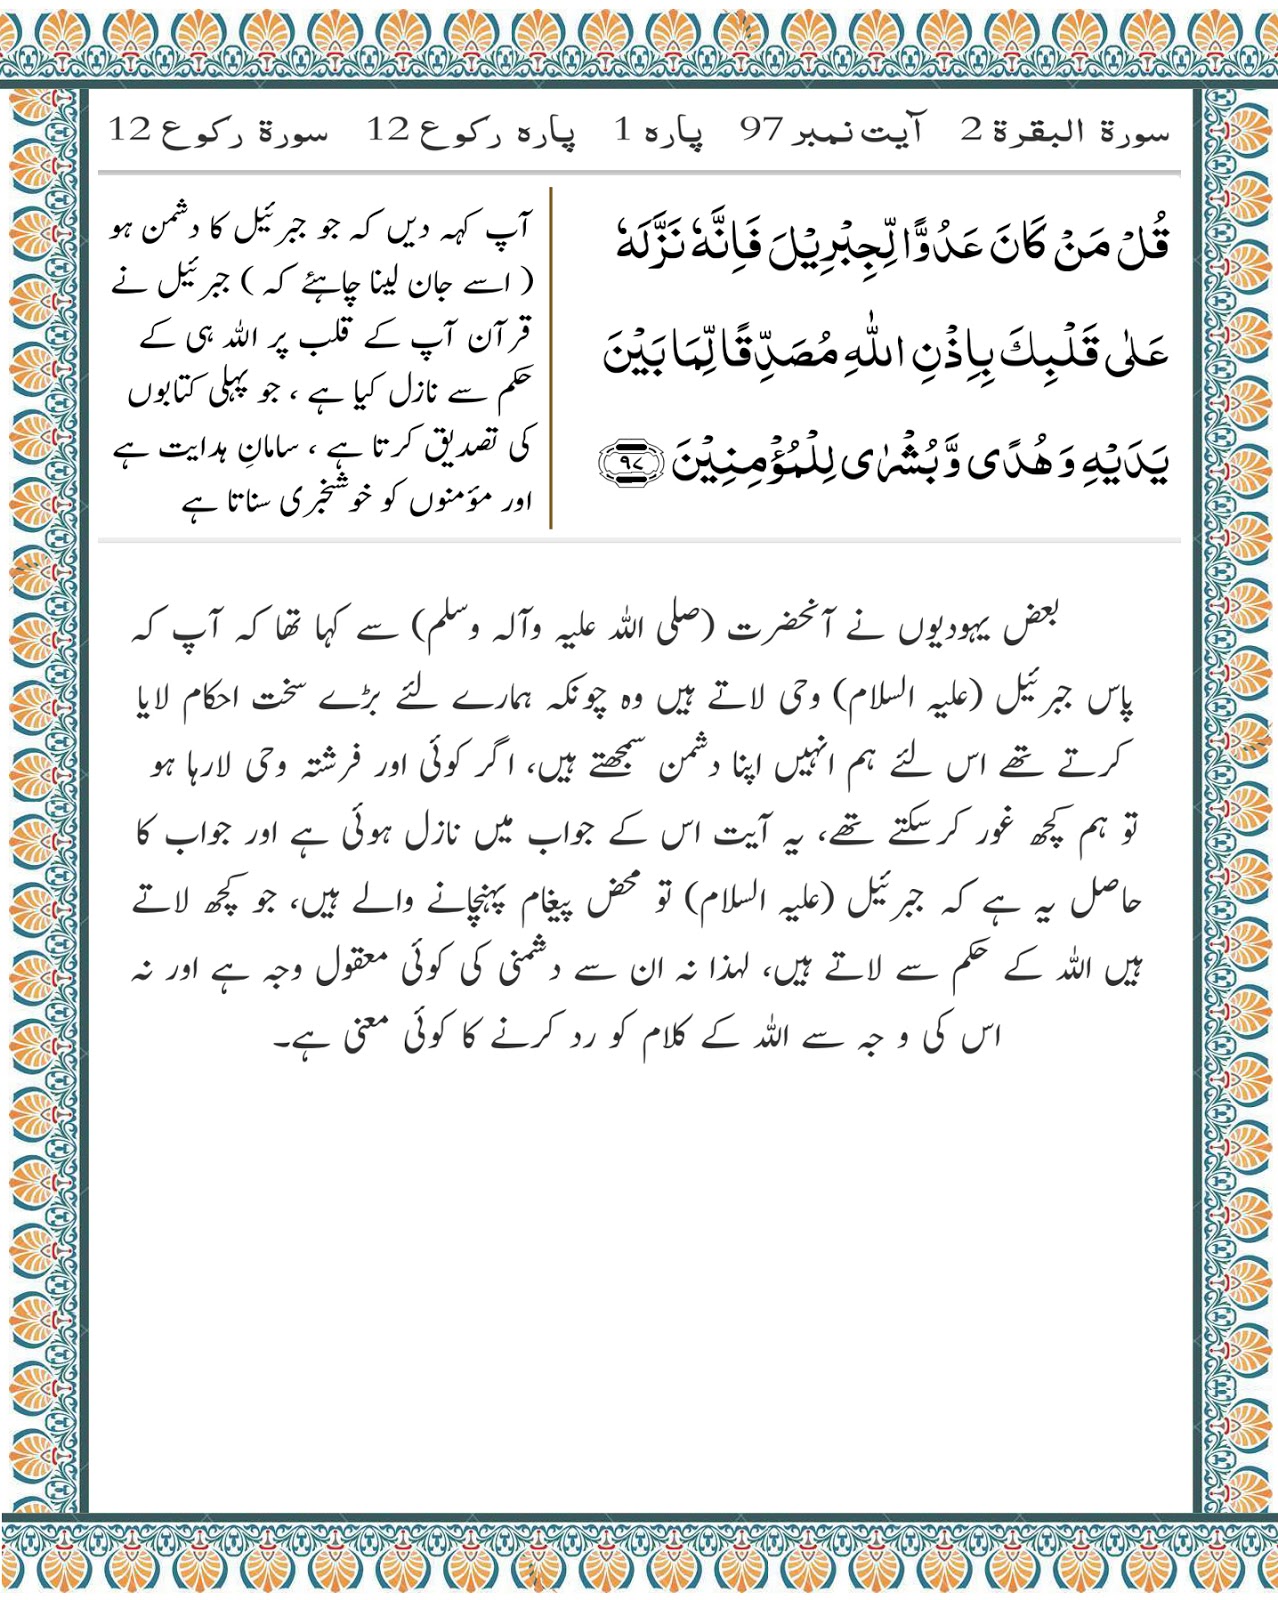 سورة البقرة 2 آیت نمبر 97 پارہ 1 پارہ رکوع 12 سورة رکوع 12
قُلْ مَنْ كَانَ عَدُوًّا لِّجِبْرِيْلَ فَاِنَّهٗ نَزَّلَهٗ
عَلٰى قَلْبِكَ بِاِذْنِ اللّٰهِ مُصَدِّقًا لِّمَا بَيْنَ
يَدَيْهِ وَهُدًى وَّبُشْرٰى لِلْمُؤْمِنِيْنَ ۹۷
آپ کہہ دیں کہ جو جبرئیل کا دشمن ہو
( اسے جان لینا چاہئے کہ ) جبرئیل نے
قرآن آپ کے قلب پر اللہ ہی کے
حکم سے نازل کیا ہے ، جو پہلی کتابوں
کی تصدیق کرتا ہے ، سامانِ ہدایت ہے
اور مؤمنوں کو خوشخبری سناتا ہے
بعض یہودیوں نے آنحضرت (صلی اللہ علیہ وآلہ وسلم) سے کہا تھا کہ آپ کہ
پاس جبرئیل (علیہ السلام) وحی لاتے ہیں وہ چونکہ ہمارے لئے بڑے سخت احکام لایا
کرتے تھے اس لئے ہم انہیں اپنا دشمن سمجھتے ہیں، اگر کوئی اور فرشتہ وحی لارہا ہو
تو ہم کچھ غور کرسکتے تھے، یہ آیت اس کے جواب میں نازل ہوئی ہے اور جواب کا
حاصل یہ ہے کہ جبرئیل (علیہ السلام) تو محض پیغام پہنچانے والے ہیں، جو کچھ لاتے
ہیں اللہ کے حکم سے لاتے ہیں، لہذا نہ ان سے دشمنی کی کوئی معقول وجہ ہے اور نہ
اس کی و جہ سے اللہ کے کلام کو رد کرنے کا کوئی معنی ہے۔